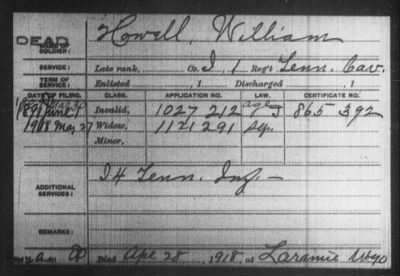 DEAD
NAME OF SOLDIER: Howell, William
SERVICE: Late rank, Co. I, 1 Reg't Tenn. Cav.
TERM OF SERVICE: Enlisted 1 Discharged 1
DATE OF FILING. CLASS. APPLICATION NO. LAW. CERTIFICATE NO.
Invalid, 1027 212 865 392
1918 May 27 Widow, 1121 291 Sep.
Minor,
ADDITIONAL SERVICES: I 4 Tenn. Inf.
REMARKS:
Died Apr 28, 1918, at Laramie Wyo